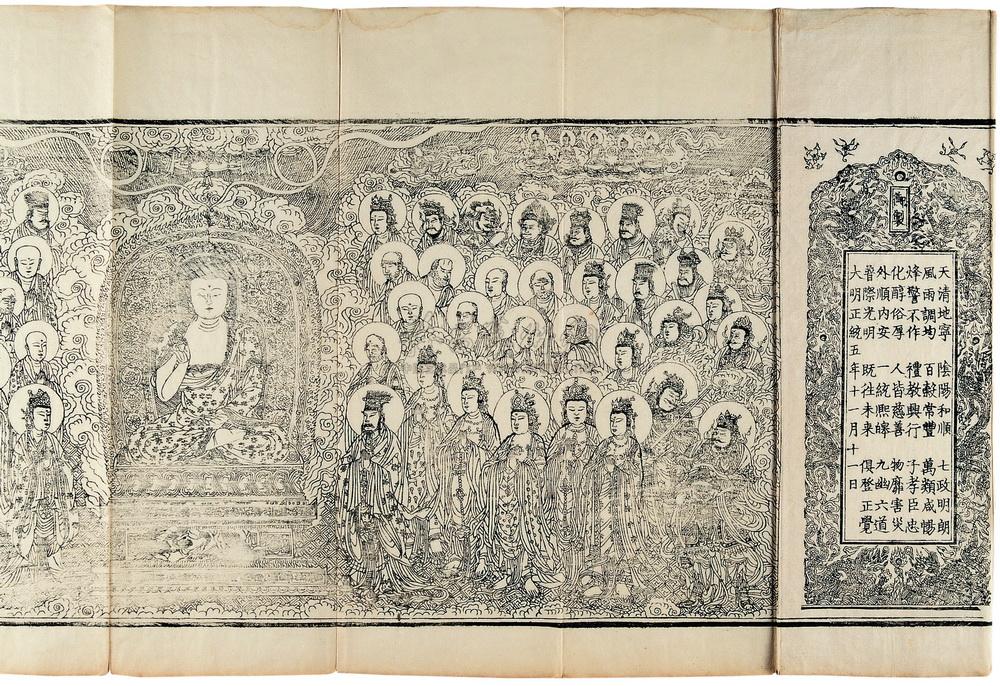 御製
天清地寧 陰陽和順 七政明朗
風雨調均 百穀常豐 萬類咸暢
烽警不作 禮教興行 子孝臣忠
化醇俗厚 人皆慈善 物靡害災
外順內安 一統熈皞 九幽六道
普際光明 既往未来 俱登正覺
大明正統五年十一月十一日